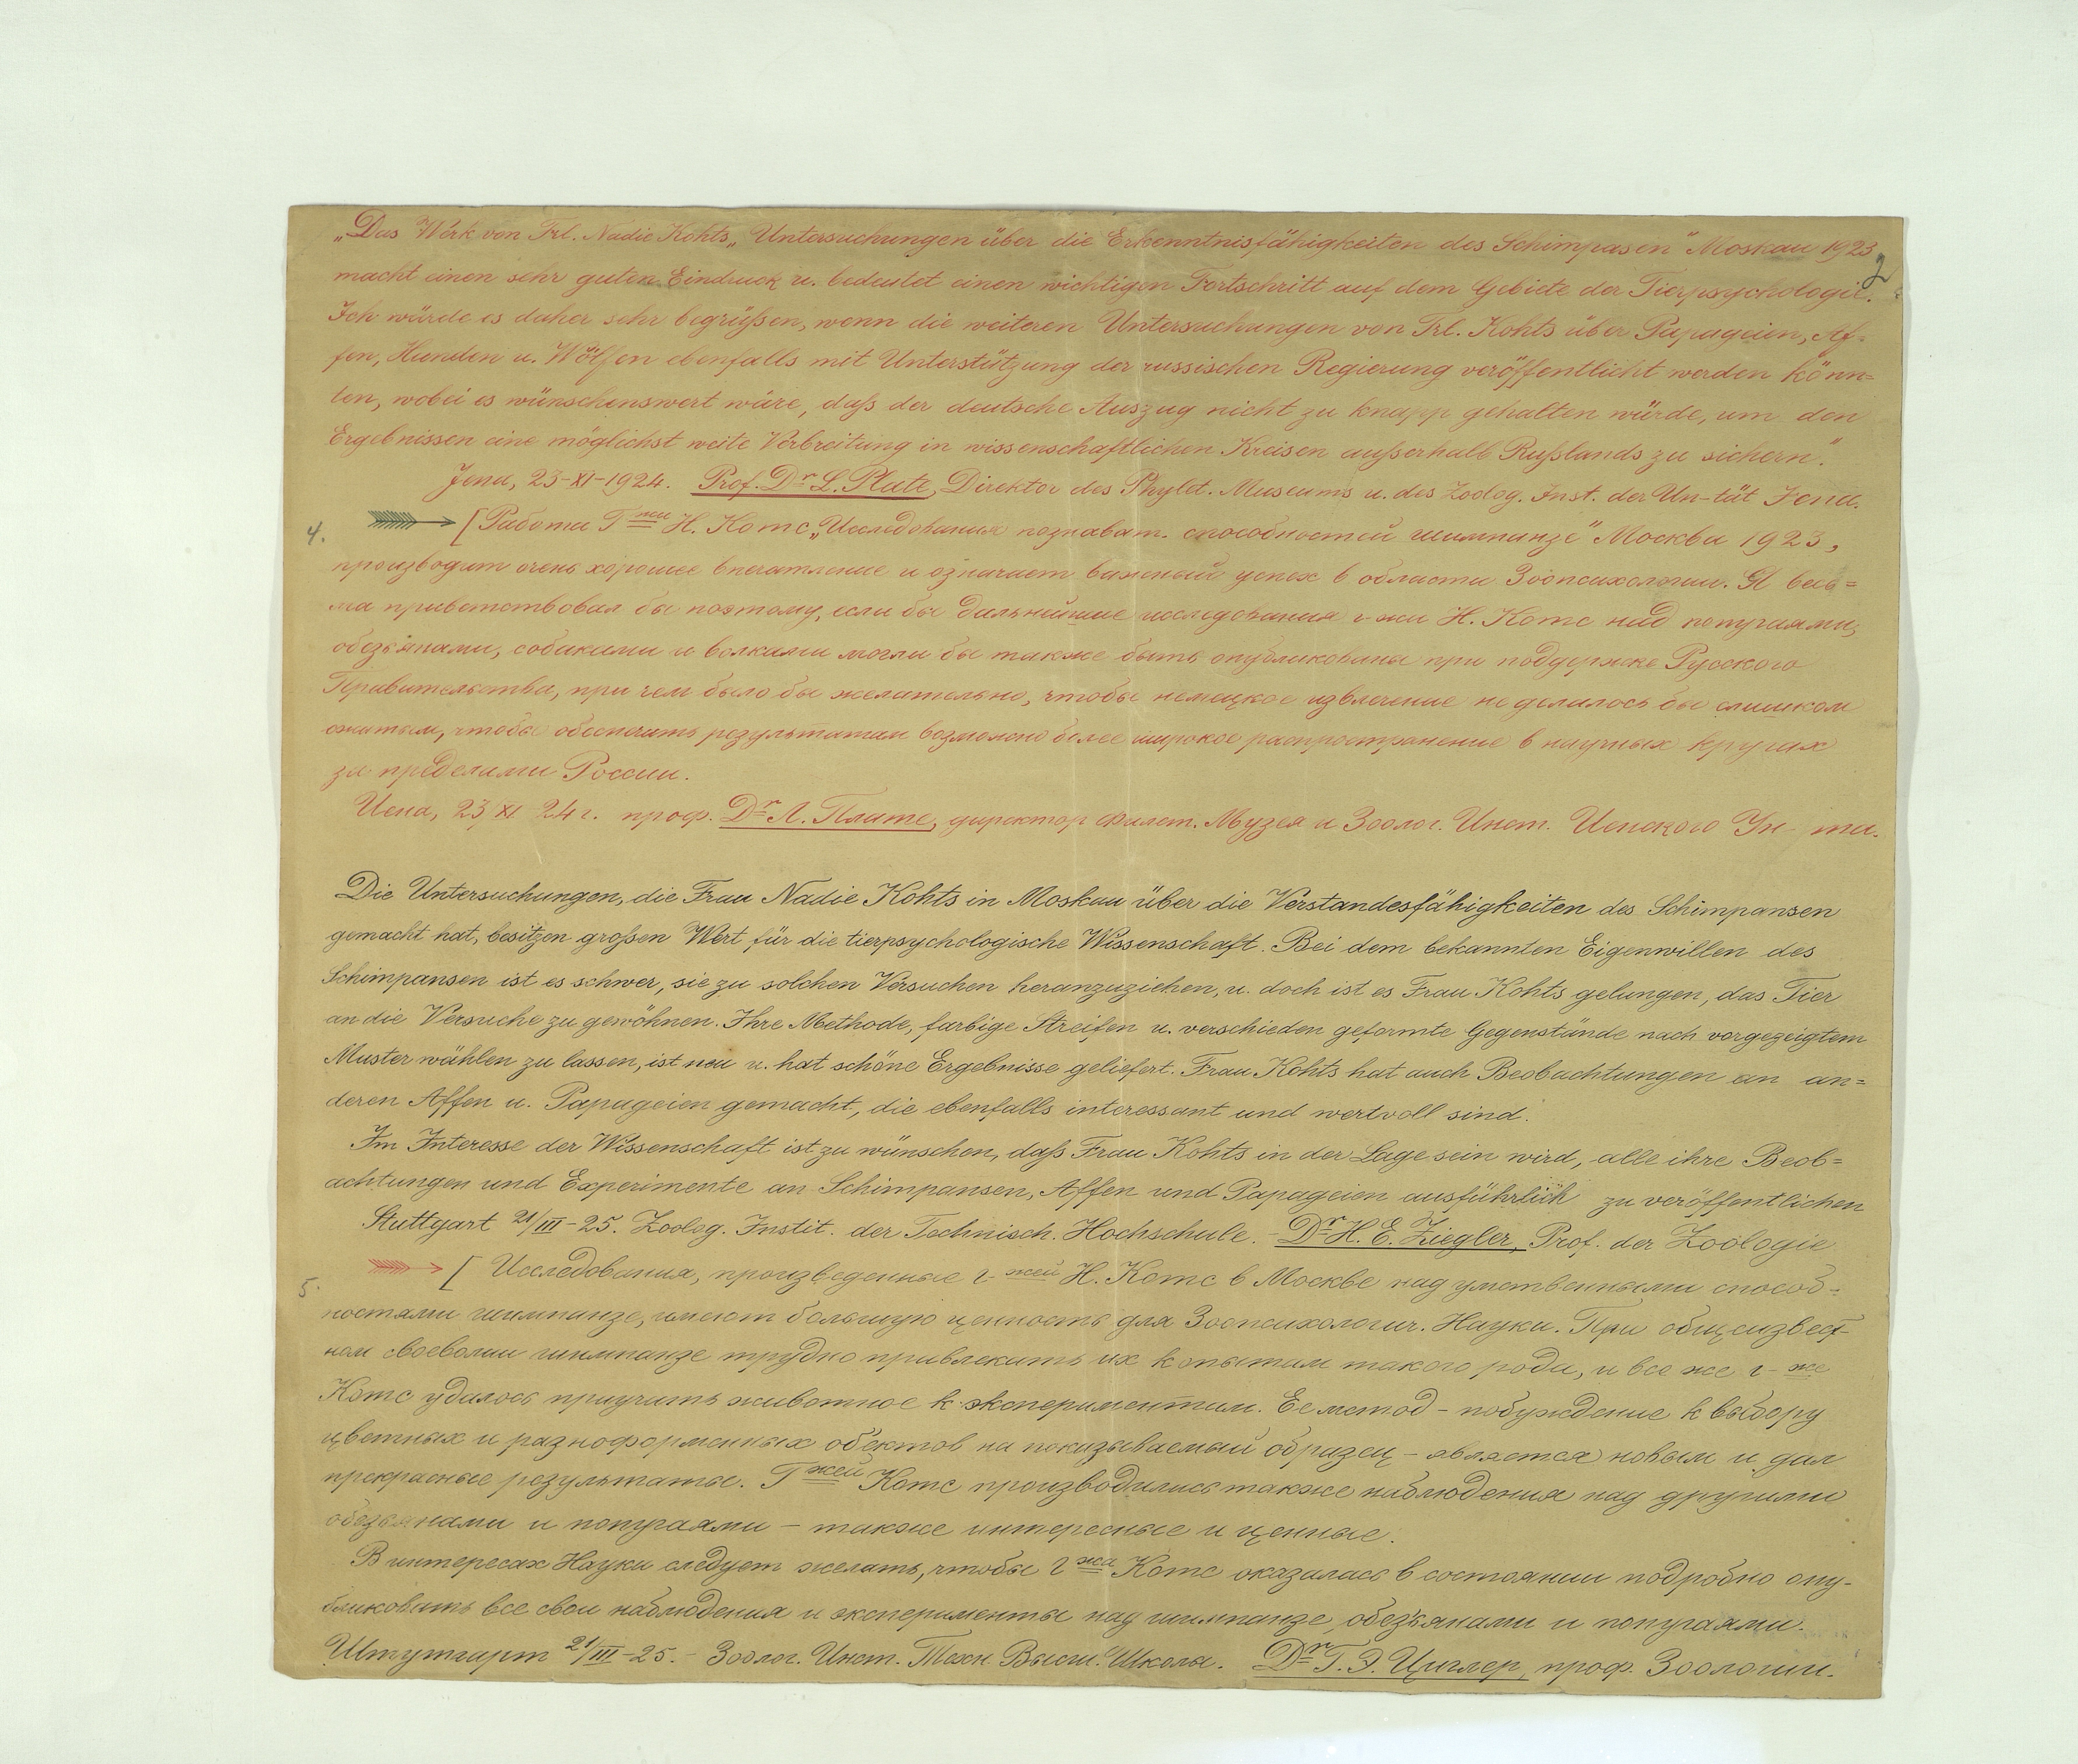 „Das Werk von Frl. Nadie Kohts „Untersuchungen über die Erkenntnisfähigkeiten des Schimpasen" Moskau 1923
2
macht einen sehr guten Eindruck u. bedeutet einen wichtigen Fortschritt auf dem Gebiete der Tierpsychologie.
Ich würde es daher sehr begrüßen, wenn die weiteren Untersuchungen von Frl. Kohts über Papageien, Af-
fen, Hunden u. Wölfen ebenfalls mit Unterstützung der russischen Regierung veröffentlicht werden könn=
ten, wobei es wünschenswert wäre, daß der deutsche Auszug nicht zu knapp gehalten würde, um den
Ergebnissen eine möglichst weite Verbreitung in wissenschaftlichen Kreisen außerhalb Rußlands zu sichern".
Jena, 23-XI-1924. Prof. Dr L. Plate, Direktor des Phylet. Museums u. des Zoolog. Inst. der Un-tät Jena.
4. [Работа Г жи Н. Котс „Исследования познават. способностей шимпанзе" Москва 1923,
производит очень хорошее впечатление и означает важный успех в области Зоопсихологии. Я весь=
ма приветствовал бы поэтому, если бы дальнейшие исследования г-жи Н. Котс над попугаями,
обезьянами, собаками и волками могли бы также быть опубликованы при поддержке Русского
Правительства, при чем было бы желательно, чтобы немецкое извлечение не делалось бы слишком
сжатым, чтобы обеспечить результатам возможно более широкое распространение в научных кругах
за пределами России.
Иена, 23 XI 24 г. проф. Dr Л. Плате, директор Филет. Музея и Зоолог. Инст. Иенского Ун-та.
Die Untersuchungen, die Frau Nadie Kohts in Moskau über die Verstandesfähigkeiten des Schimpansen
gemacht hat, besitzen großen Wert für die tierpsychologische Wissenschaft. Bei dem bekannten Eigenwillen des
Schimpansen ist es schwer, sie zu solchen Versuchen heranzuziehen, u. doch ist es Frau Kohts gelungen, das Tier
an die Versuche zu gewöhnen. Ihre Methode, farbige Streifen u. verschieden geformte Gegenstände nach vorgezeigtem
Muster wählen zu lassen, ist neu u. hat schöne Ergebnisse geliefert. Frau Kohts hat auch Beobachtungen an an=
deren Affen u. Papageien gemacht, die ebenfalls interessant und wertvoll sind.
Im Interesse der Wissenschaft ist zu wünschen, daß Frau Kohts in der Lage sein wird, alle ihre Beob=
achtungen und Experimente an Schimpansen, Affen und Papageien ausführlich zu veröffentlichen
Stuttgart 21/III-25. Zoolog. Instit. der Technisch. Hochschule. - Dr H. E. Ziegler, Prof. der Zoologie
5. [Исследования, произведенные г-жей Н. Котс в Москве над умственными способ-
ностями шимпанзе, имеют большую ценность для Зоопсихологич. Науки. При общеизвест-
ном своеволии шимпанзе трудно привлекать их к опытам такого рода, и все же г-же
Котс удалось приучить животное к экспериментам. Ее метод - побуждение к выбору
цветных и разноформенных об'ектов на показываемый образец - является новым и дал
прекрасные результаты. Г жей Котс производились также наблюдения над другими
обезьянами и попугаями - также интересные и ценные.
В интересах Науки следует желать, чтобы г жа Котс оказалась в состоянии подробно опу-
бликовать все свои наблюдения и эксперименты над шимпанзе, обезьянами и попугаями.
Штутгарт 21/III-25. - Зоолог. Инст. Техн. Высш. Школы. Dr Г. Э. Циглер, проф. Зоологии.